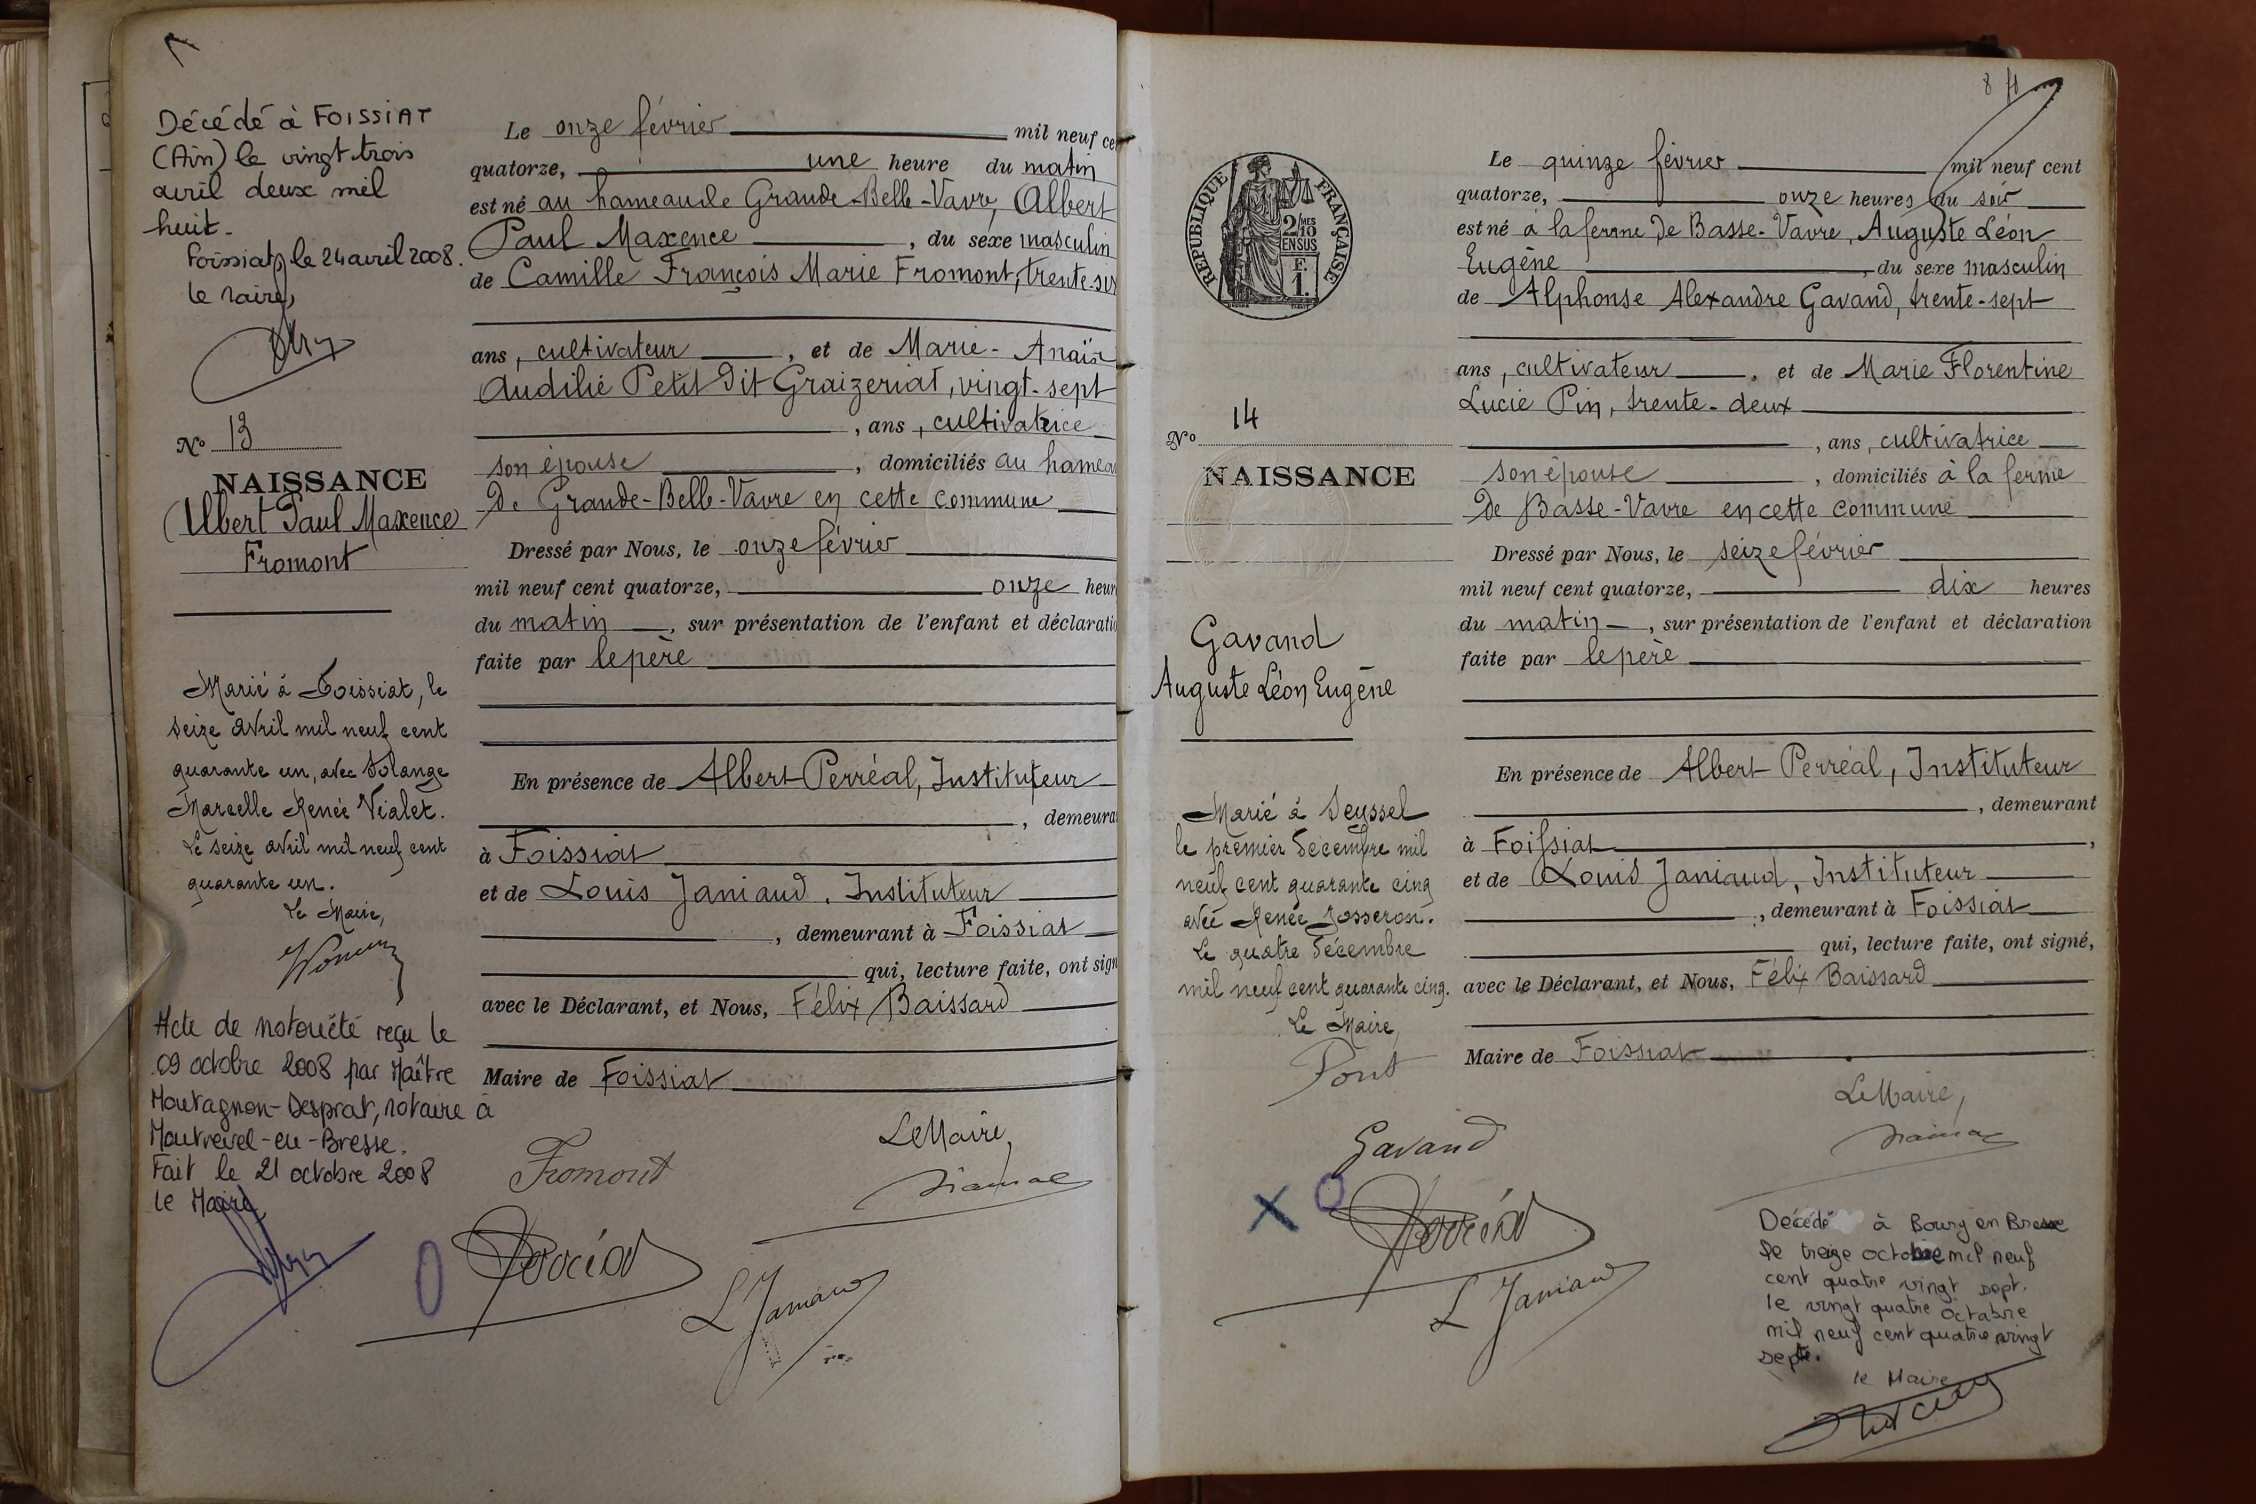 Décédé à FOISSIAT
(Ain) le vingt-trois
avril deux mil
huit.
Foissiat, le 24 avril 2008.
le Maire,
No 13
NAISSANCE
Albert Paul Maxence
Fromont
Marié à Foissiat, le
seize avril mil neuf cent
quarante un, avec Solange
Marcelle Renée Vialet.
Le seize avril mil neuf cent
quarante un.
Le Maire,
Acte de notoriété reçu le
09 octobre 2008 par Maître
Montagnon-Desprat, notaire à
Montrevel-en-Bresse.
Fait le 21 octobre 2008
le Maire
Le onze février mil neuf ce
quatorze, une heure du matin
est né au hameau de Grande-Belle-Vavre, Albert
Paul Maxence , du sexe masculin
de Camille François Marie Fromont, trente-six
ans, cultivateur , et de Marie-Anaïs
Audilie Petit Dit Graizeriat, vingt-sept
, ans, cultivatrice
son épouse , domiciliés au hameau
de Grande-Belle-Vavre en cette commune
Dressé par Nous, le onze février
mil neuf cent quatorze, onze heur
du matin , sur présentation de l'enfant et déclaratio
faite par le père
En présence de Albert Perréal, Instituteur
, demeura
à Foissiat
et de Louis Janiaud, Instituteur
, demeurant à Foissiat
qui, lecture faite, ont sign
avec le Déclarant, et Nous, Félix Baissard
Maire de Foissiat
Le Maire,
Fromont
Perréal
L Janiaud
8
RÉPUBLIQUE FRANÇAISE
2/10MES
EN SUS
F.
1.
No 14
NAISSANCE
Gavand
Auguste Léon Eugène
Marié à Seyssel
le premier décembre mil
neuf cent quarante cinq
avec Renée Josseron.
Le quatre décembre
mil neuf cent quarante cinq.
Le Maire,
Pont
Le quinze février mil neuf cent
quatorze, onze heures du soir
est né à la ferme de Basse-Vavre, Auguste Léon
Eugène , du sexe masculin
de Alphonse Alexandre Gavand, trente-sept
ans, cultivateur , et de Marie Florentine
Lucie Pin, trente-deux
, ans, cultivatrice
son épouse , domiciliés à la ferme
de Basse-Vavre en cette commune
Dressé par Nous, le seize février
mil neuf cent quatorze, dix heures
du matin , sur présentation de l'enfant et déclaration
faite par le père
En présence de Albert Perréal, Instituteur
, demeurant
à Foissiat ,
et de Louis Janiaud, Instituteur
, demeurant à Foissiat
qui, lecture faite, ont signé,
avec le Déclarant, et Nous, Félix Baissard
Maire de Foissiat
Le Maire,
Gavand
Perréal
L Janiaud
Décédé à Bourg en Bresse
le treize octobre mil neuf
cent quatre vingt sept.
le vingt quatre octobre
mil neuf cent quatre vingt
sept.
le Maire